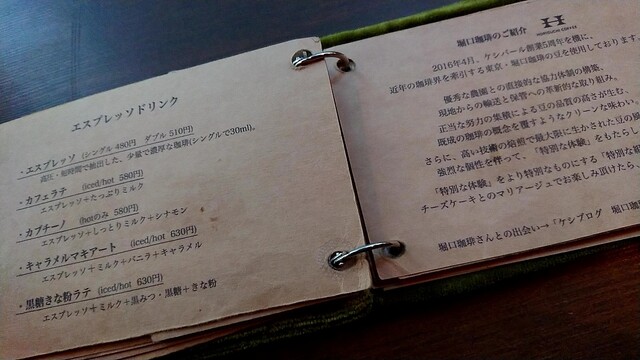 エスプレッソドリンク
・エスプレッソ (シングル 480円 ダブル 510円)
高圧・短時間で抽出した、少量で濃厚な珈琲(シングルで30ml)。
・カフェラテ (iced/hot 580円)
エスプレッソ+たっぷりミルク
・カプチーノ (hotのみ 580円)
エスプレッソ+しっとりミルク+シナモン
・キャラメルマキアート (iced/hot 630円)
エスプレッソ+ミルク+バニラ+キャラメル
・黒糖きな粉ラテ (iced/hot 630円)
エスプレッソ+ミルク+黒みつ・黒糖+きな粉
堀口珈琲のご紹介
HORIGUCHI COFFEE
2016年4月、ケシパール創業5周年を機に、
近年の珈琲界を牽引する東京・堀口珈琲の豆を使用しております。
優秀な農園との直接的な協力体制の構築、
現地からの輸送と保管への革新的な取り組み。
正当な努力の集積による豆の品質の高さが生む、
既成の珈琲の概念を覆すようなクリーンな味わい
さらに、高い技術の焙煎で最大限に生かされた豆の
強烈な個性を伴って、「特別な体験」をもたらし
「特別な体験」をより特別なものにする「特別な
チーズケーキとのマリアージュでお楽しみ頂けたら、
堀口珈琲さんとの出会い→『ケシブログ 堀口